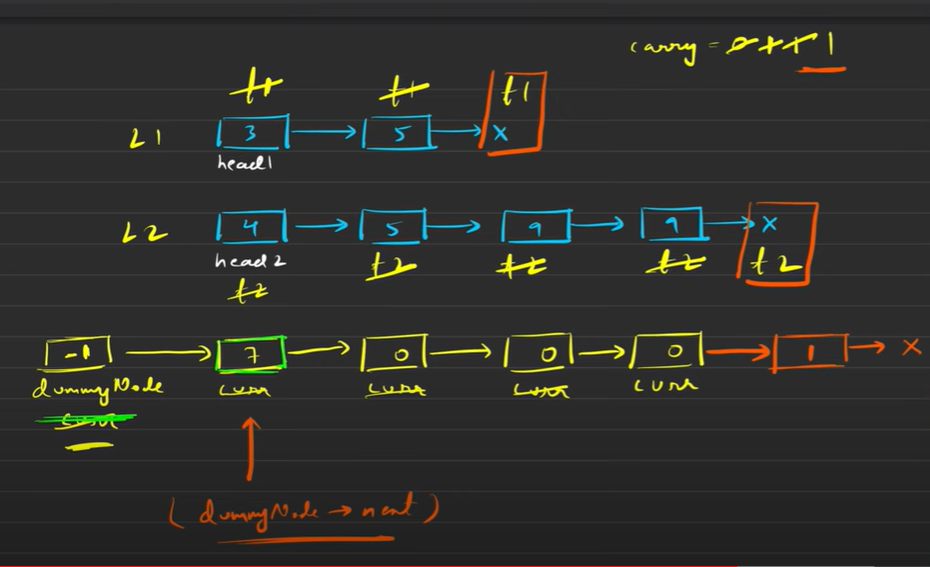 carry = 0 1 1 1
t1 t1 t1
L1 3 5 x
head1
L2 4 5 9 9 x
head2 t2 t2 t2 t2
t2
-1 7 0 0 0 1 x
dummyNode curr curr curr curr
curr
(dummyNode → next)